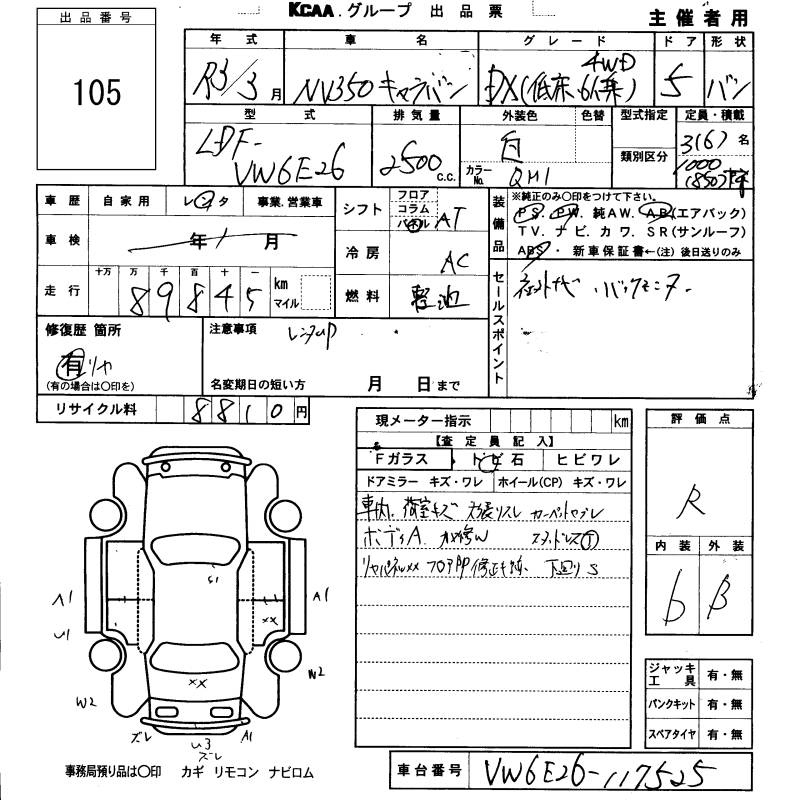 KCAA.グループ 出品票
主催者用
出品番号
105
年式 車名 グレード ドア 形状
R3/3月 NV350 キャラバン DX(低床、6人乗) 4WD 5 バン
型式 排気量 外装色 色替 型式指定 定員・積載
LDF-
VW6E26
2500 c.c.
白
カラーNo. QM1
類別区分
3(6)名
1000
(850)
車歴 自家用 レンタ 事業、営業車
車検 年 月
走行 十万 万 千 百 十 一
89845 km マイル
シフト フロア コラム パネル AT
冷房 AC
燃料 軽油
装備品
※純正のみ〇印をつけて下さい。
PS. PW. 純AW. AB(エアバック)
TV. ナビ. カワ. SR(サンルーフ)
ABS・ 新車保証書←(注)後日送りのみ
セールスポイント
バックモニター
修復歴 箇所
有 リヤ
(有の場合は〇印を)
注意事項 レンタup
名変期日の短い方 月 日まで
リサイクル料 8810円
現メーター指示 km
【査定員記入】
Fガラス トビ石 ヒビワレ
ドアミラー キズ・ワレ ホイール(CP) キズ・ワレ
車内、荷室キズ
ボディA
リヤパネルXX フロアPP修正 下回りS
評価点
R
内装 外装
b B
ジャッキ工具 有・無
パンクキット 有・無
スペアタイヤ 有・無
S1
A1
U1
A1
XX
W2
W2
XX
ズレ U3 ズレ A1
事務局預り品は〇印 カギ リモコン ナビロム
車台番号 VW6E26-117525